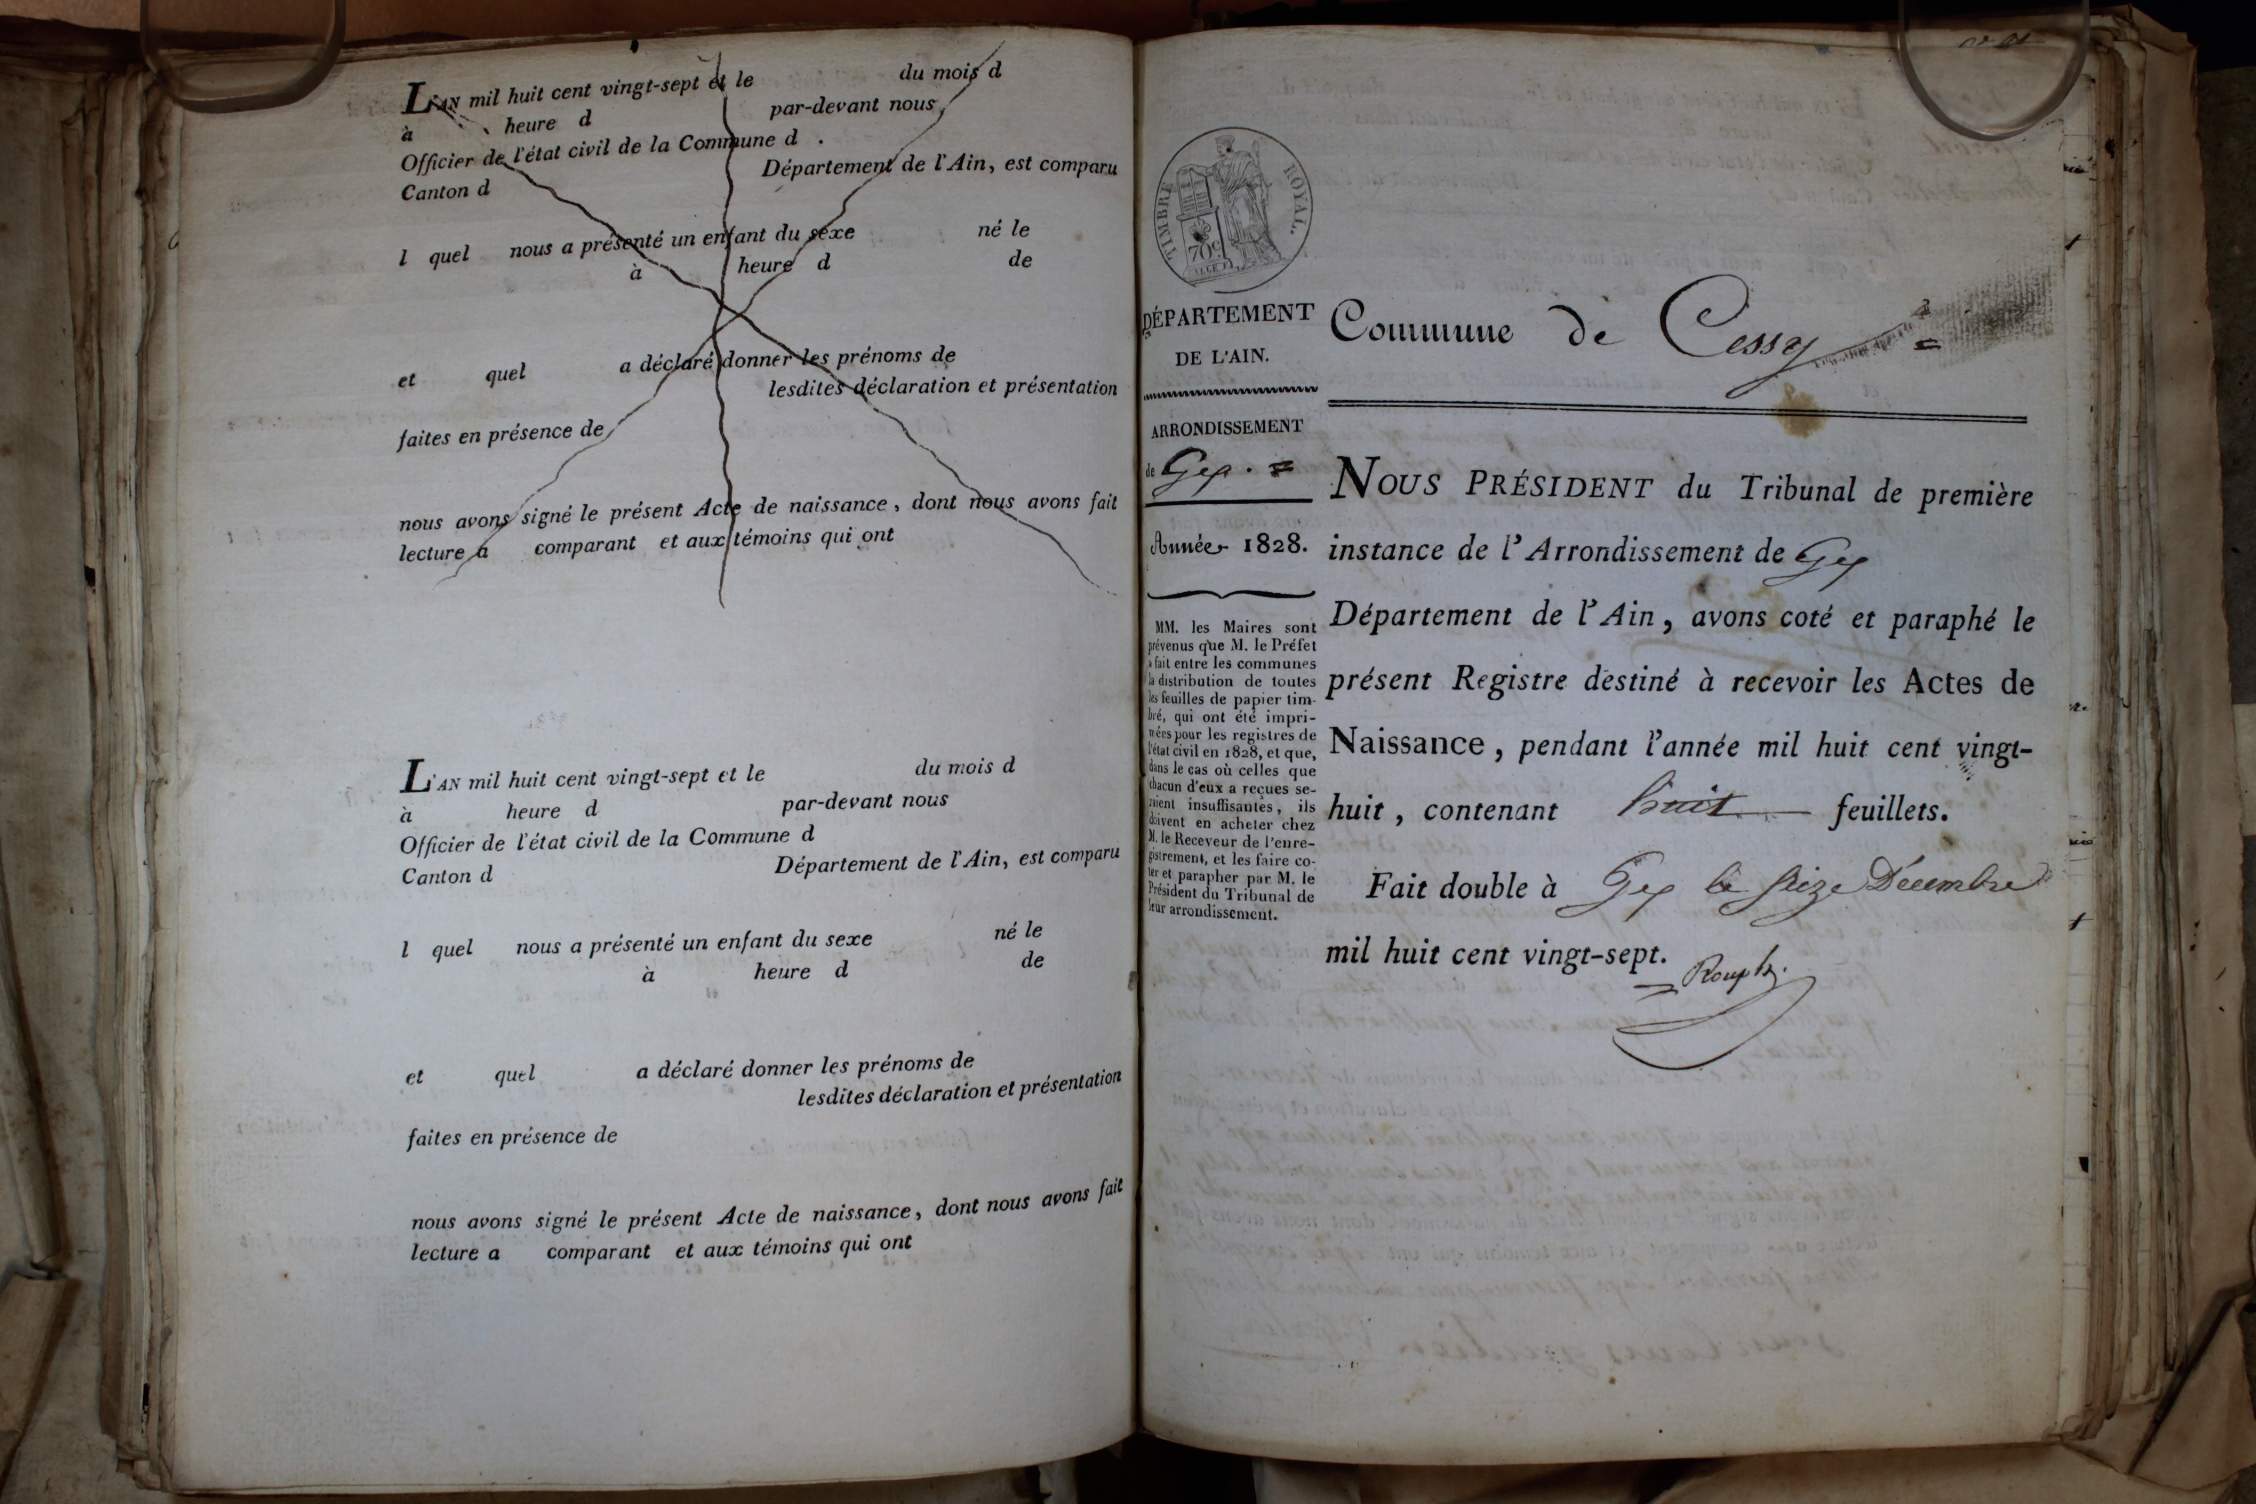 L'AN mil huit cent vingt-sept et le du mois d
à heure d par-devant nous
Officier de l'état civil de la Commune d .
Canton d Département de l'Ain, est comparu
l quel nous a présenté un enfant du sexe né le
à heure d de
et quel a déclaré donner les prénoms de
lesdites déclaration et présentation
faites en présence de
nous avons signé le présent Acte de naissance, dont nous avons fait
lecture a comparant et aux témoins qui ont
L'AN mil huit cent vingt-sept et le du mois d
à heure d par-devant nous
Officier de l'état civil de la Commune d
Canton d Département de l'Ain, est comparu
l quel nous a présenté un enfant du sexe né le
à heure d de
et quel a déclaré donner les prénoms de
lesdites déclaration et présentation
faites en présence de
nous avons signé le présent Acte de naissance, dont nous avons fait
lecture a comparant et aux témoins qui ont
TIMBRE ROYAL.
70 c
DÉPARTEMENT
DE L'AIN.
ARRONDISSEMENT
de Gex. =
Année 1828.
MM. les Maires sont
prévenus que M. le Préfet
a fait entre les communes
la distribution de toutes
les feuilles de papier tim-
bré, qui ont été impri-
mées pour les registres de
l'état civil en 1828, et que,
dans le cas où celles que
chacun d'eux a reçues se-
raient insuffisantes, ils
doivent en acheter chez
M. le Receveur de l'enre-
gistrement, et les faire co-
ter et parapher par M. le
Président du Tribunal de
leur arrondissement.
Commune de Cessy =
NOUS PRÉSIDENT du Tribunal de première
instance de l'Arrondissement de Gex
Département de l'Ain, avons coté et paraphé le
présent Registre destiné à recevoir les Actes de
Naissance, pendant l'année mil huit cent vingt-
huit, contenant huit feuillets.
Fait double à Gex le seize Décembre
mil huit cent vingt-sept.